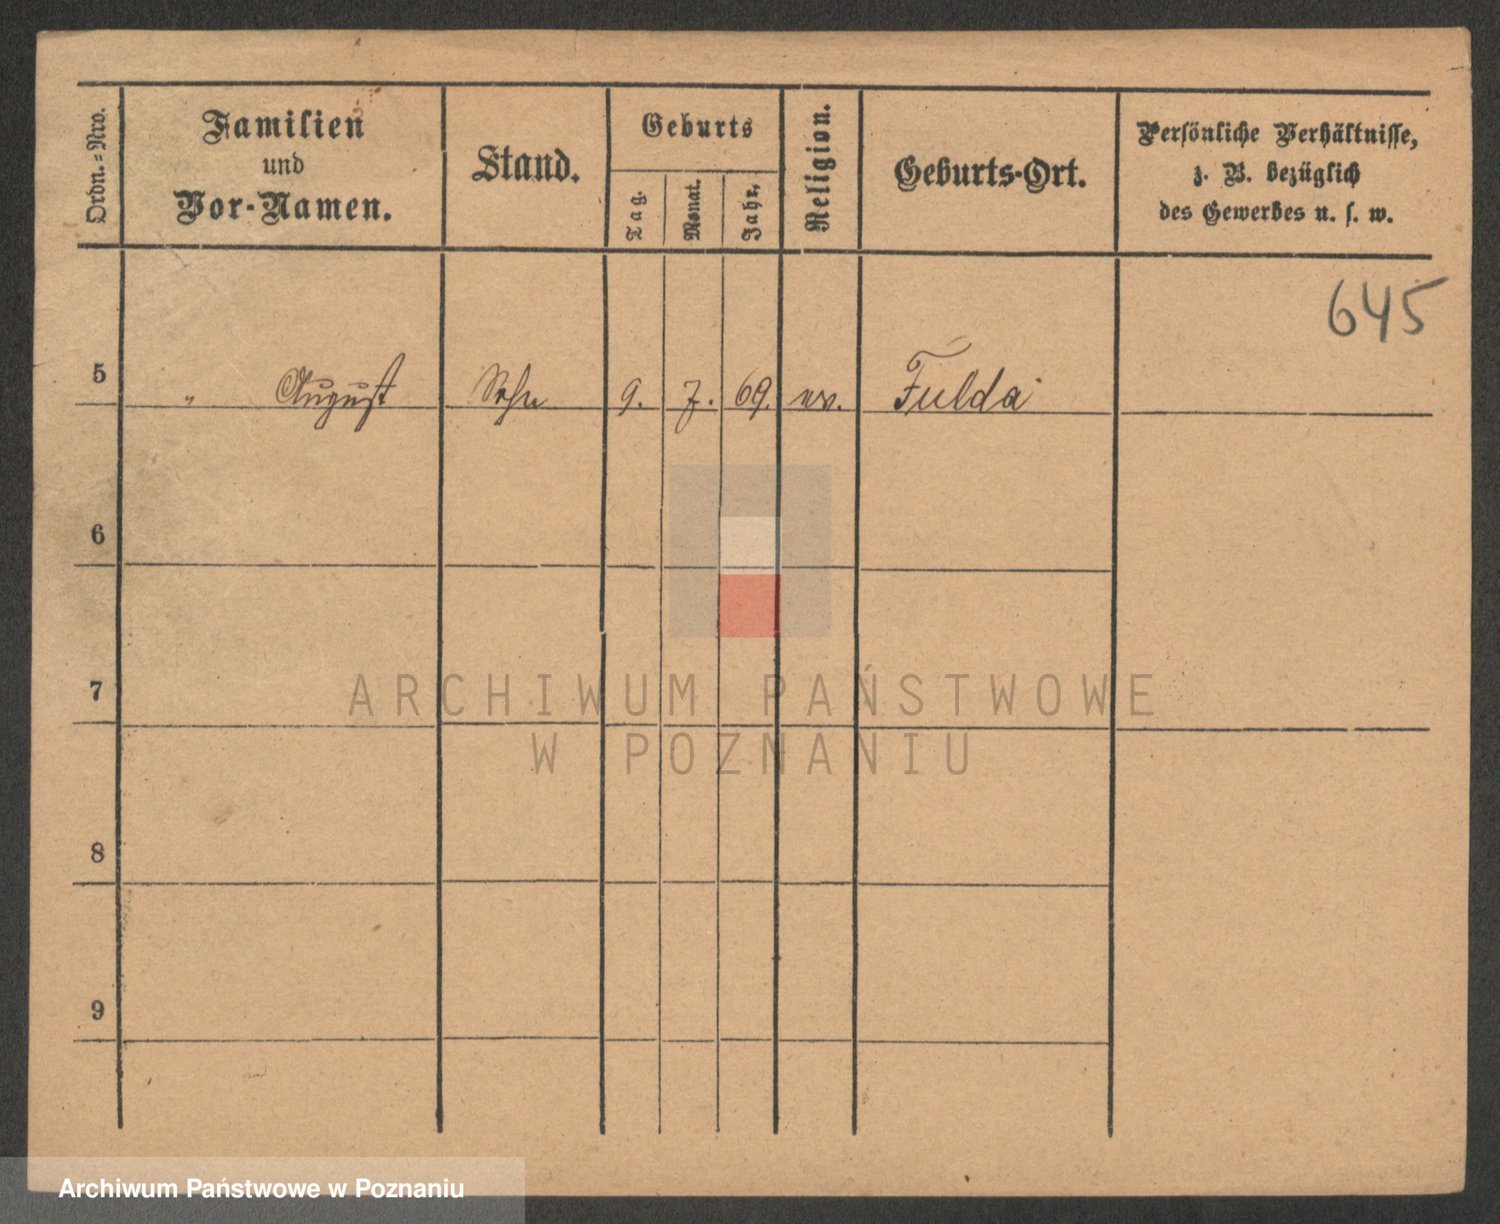 Ordn.=Nro.
Familien
und
Vor-Namen.
Stand.
Geburts
Tag.
Monat.
Jahr.
Religion.
Geburts-Ort.
Persönliche Verhältnisse,
z. B. bezüglich
des Gewerbes u. s. w.
645
5 " August Sohn 9. 7. 69. ev. Fulda
6
7
8
9
ARCHIWUM PAŃSTWOWE
W POZNANIU
Archiwum Państwowe w Poznaniu